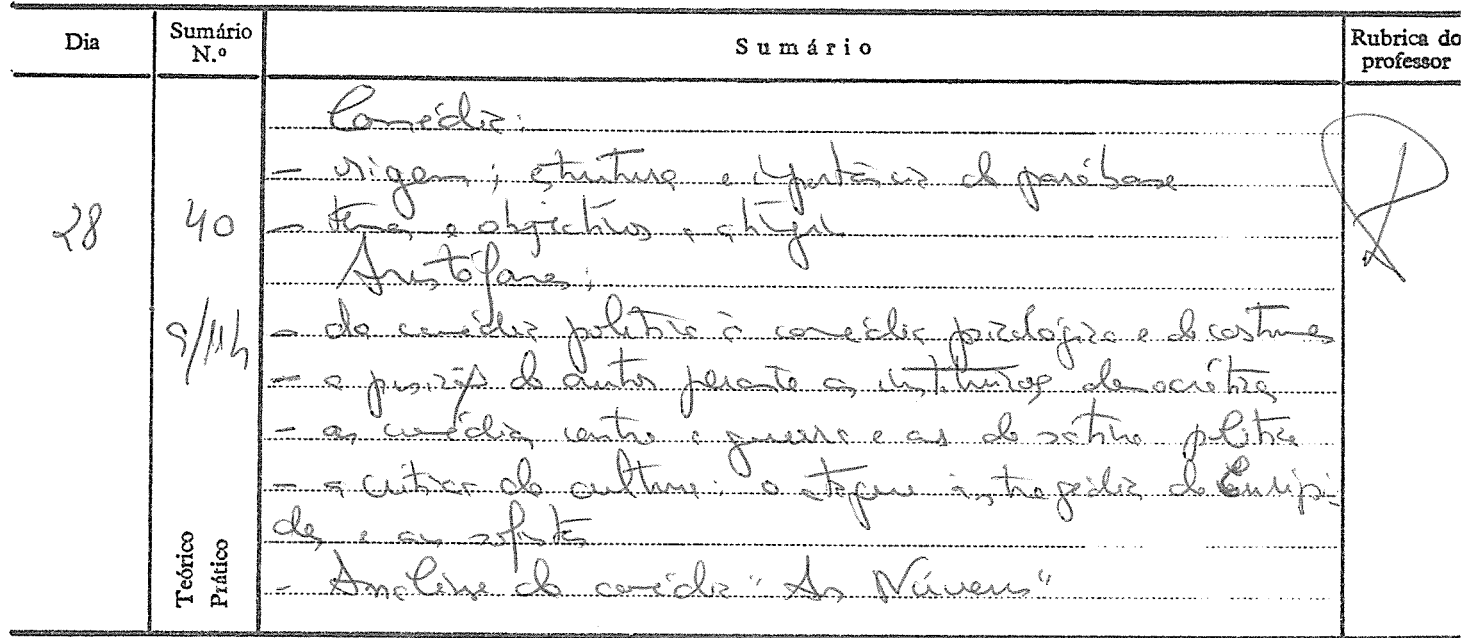 Dia Sumário N.º Sumário Rubrica do professor
Comédia:
- origem; estrutura e importância da parábase
- temas e objectivos
28 40
Aristófanes:
9/11h - da comédia política à comédia psicológica e de costumes
- a posição do autor perante as instituições democráticas
- as comédias contra a guerra e as de sátira política
- a crítica da cultura: o ataque às tragédias de Eurípi-
des e aos sofistas
- Análise da comédia "As Núvens"
Teórico
Prático